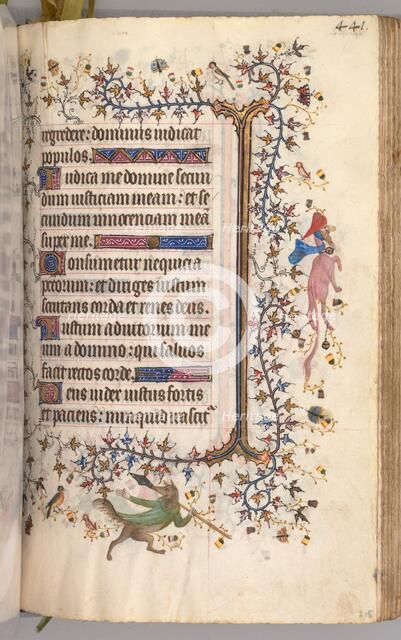 441.
regredere: dominus iudicat
populos.
Iudica me domine secun
dum iusticiam meam: et se
cundum innocenciam mea
super me.
Consumetur nequicia
pctorum: et diriges iustum
scrutans corda et renes deus.
Iustum adiutorium me
um a domino: qui saluos
facit rectos corde.
Deus iudex iustus fortis
et paciens: nunquid irascit
215